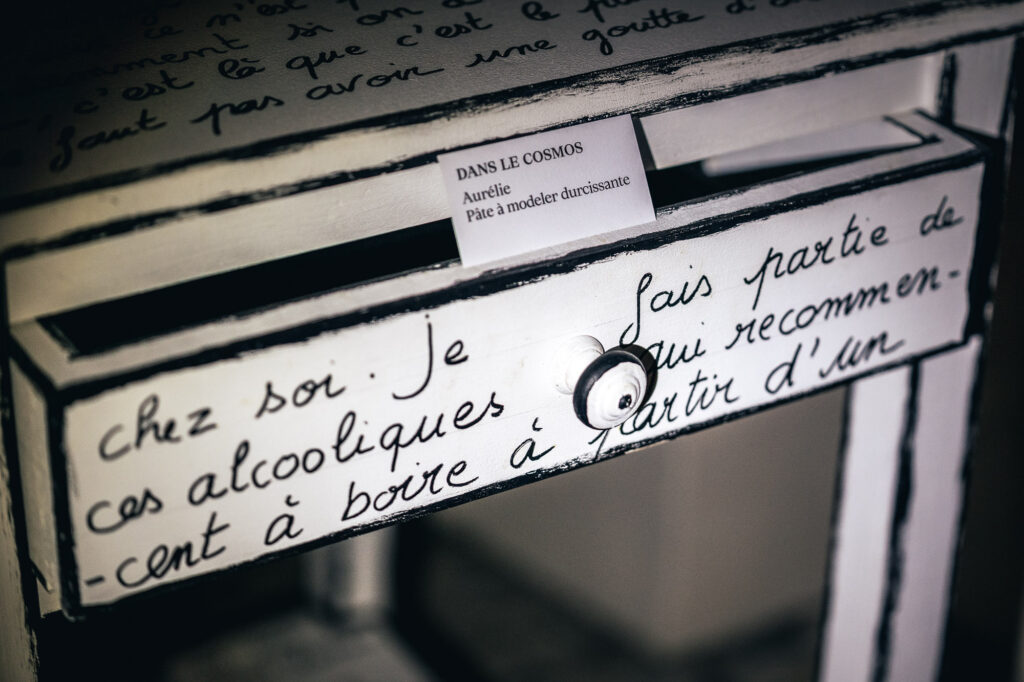 ce n'est
comment si on a
, c'est là que c'est le plus
faut pas avoir une goutte d'
DANS LE COSMOS
Aurélie
Pâte à modeler durcissante
chez soi. Je fais partie de
ces alcooliques qui recommen-
-cent à boire à partir d'un